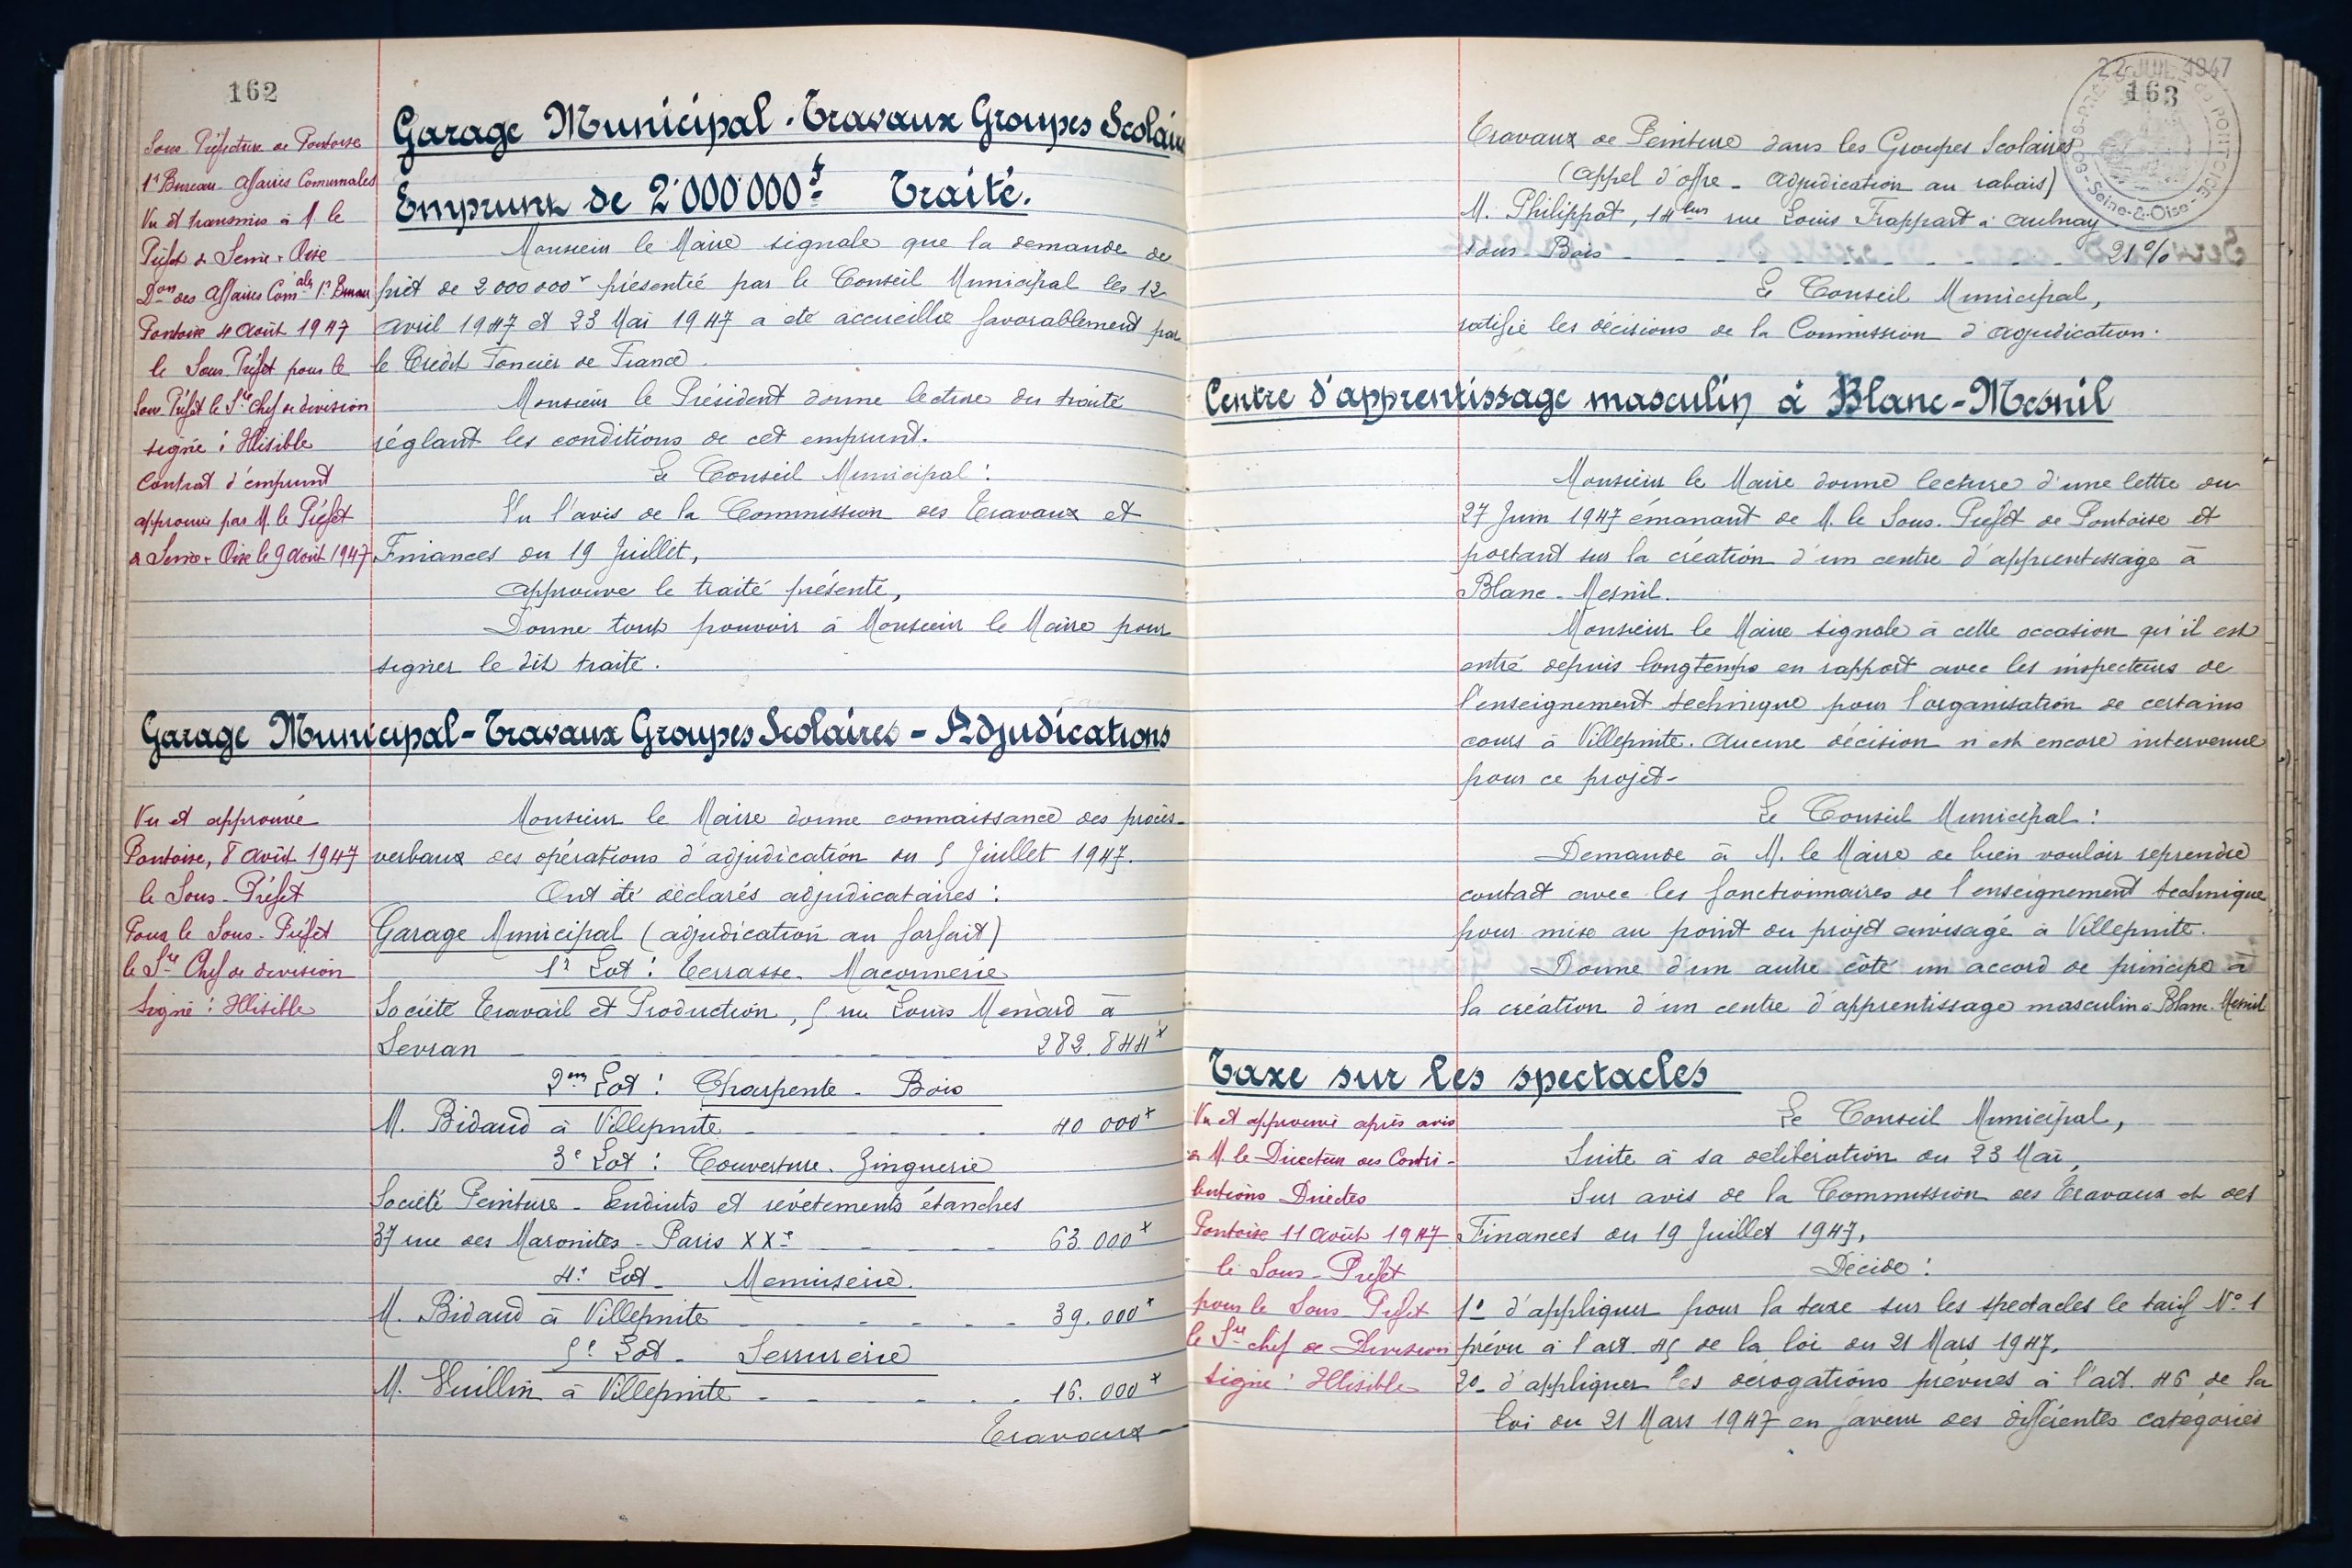 162
Garage Municipal - Travaux Groupes Scolair
Emprunt de 2.000.000f Traité.
Sous Préfecture de Pontoise
1r Bureau - Affaires Communales
Vu et transmis à M le
Préfet de Seine & Oise
Don des Affaires Comales 1r Bureau
Pontoise 4 Août 1947
le Sous Préfet pour le
Sous Préfet le Sre chef de division
signé : Illisible
Contrat d'emprunt
approuvé par M le Préfet
de Seine & Oise le 9 Août 1947
Monsieur le Maire signale que la demande de
prêt de 2 000 000r présentée par le Conseil Municipal les 12
avril 1947 et 23 Mai 1947 a été accueillie favorablement par
le Crédit Foncier de France.
Monsieur le Président donne lecture du traité
réglant les conditions de cet emprunt.
Le Conseil Municipal :
Vu l'avis de la Commission des Travaux et
Finances du 19 Juillet,
approuve le traité présenté,
Donne tout pouvoir à Monsieur le Maire pour
signer le dit traité.
Garage Municipal - Travaux Groupes Scolaires - Adjudications
Vu et approuvé
Pontoise, 8 août 1947
le Sous-Préfet
Pour le Sous-Préfet
le Sre Chef de division
Signé : Illisible
Monsieur le Maire donne connaissance des procès-
verbaux des opérations d'adjudication du 5 Juillet 1947.
Ont été déclarés adjudicataires :
Garage Municipal (adjudication au forfait)
1r Lot : Terrasse - Maçonnerie
Société Travail et Production, 5 rue Louis Menard à
Sevran - - - - - - - 282.844r
2em Lot : Charpente - Bois
M. Bidaud à Villepinte - - - - 40 000r
3e Lot : Couverture - Zinguerie
Société Peinture - Enduits et revêtements étanches
37 rue des Maronites - Paris XXe - - - - 63.000r
4e Lot - Menuiserie.
M. Bidaud à Villepinte - - - - - 39.000r
5e Lot - Serrurerie
M. Vuillin à Villepinte - - - - - 16.000r
Travaux
22 JUIL 1947
163
SOUS-PRÉFECTURE DE PONTOISE
Seine-&-Oise
Travaux de Peinture dans les Groupes Scolaires
(appel d'offre - adjudication au rabais)
M. Philippot, 14 bis rue Louis Frappart à Aulnay
sous Bois - - - - - - - - - 21%
Le Conseil Municipal,
ratifie les décisions de la Commission d'adjudication.
Centre d'apprentissage masculin à Blanc-Mesnil
Monsieur le Maire donne lecture d'une lettre du
27 Juin 1947 émanant de M. le Sous-Préfet de Pontoise et
portant sur la création d'un centre d'apprentissage à
Blanc-Mesnil.
Monsieur le Maire signale à cette occasion qu'il est
entré depuis longtemps en rapport avec les inspecteurs de
l'enseignement technique pour l'organisation de certains
cours à Villepinte. Aucune décision n'est encore intervenue
pour ce projet-
Le Conseil Municipal :
Demande à M. le Maire de bien vouloir reprendre
contact avec les fonctionnaires de l'enseignement technique
pour mise au point du projet envisagé à Villepinte.
Donne d'un autre côté un accord de principe à
la création d'un centre d'apprentissage masculin à Blanc-Mesnil
Taxe sur les spectacles
Vu et approuvé après avis
de M. le Directeur des Contri-
butions Directes
Pontoise 11 Août 1947
le Sous-Préfet
pour le Sous-Préfet
le Sre chef de Division
signé : Illisible
Le Conseil Municipal,
Suite à sa délibération du 23 Mai,
Sur avis de la Commission des Travaux et des
Finances du 19 Juillet 1947,
Décide :
1° d'appliquer pour la taxe sur les spectacles le tarif N° 1
prévu à l'art. 45 de la loi du 21 Mars 1947.
2°- d'appliquer les dérogations prévues à l'art. 46 de la
loi du 21 Mars 1947 en faveur des différentes catégories